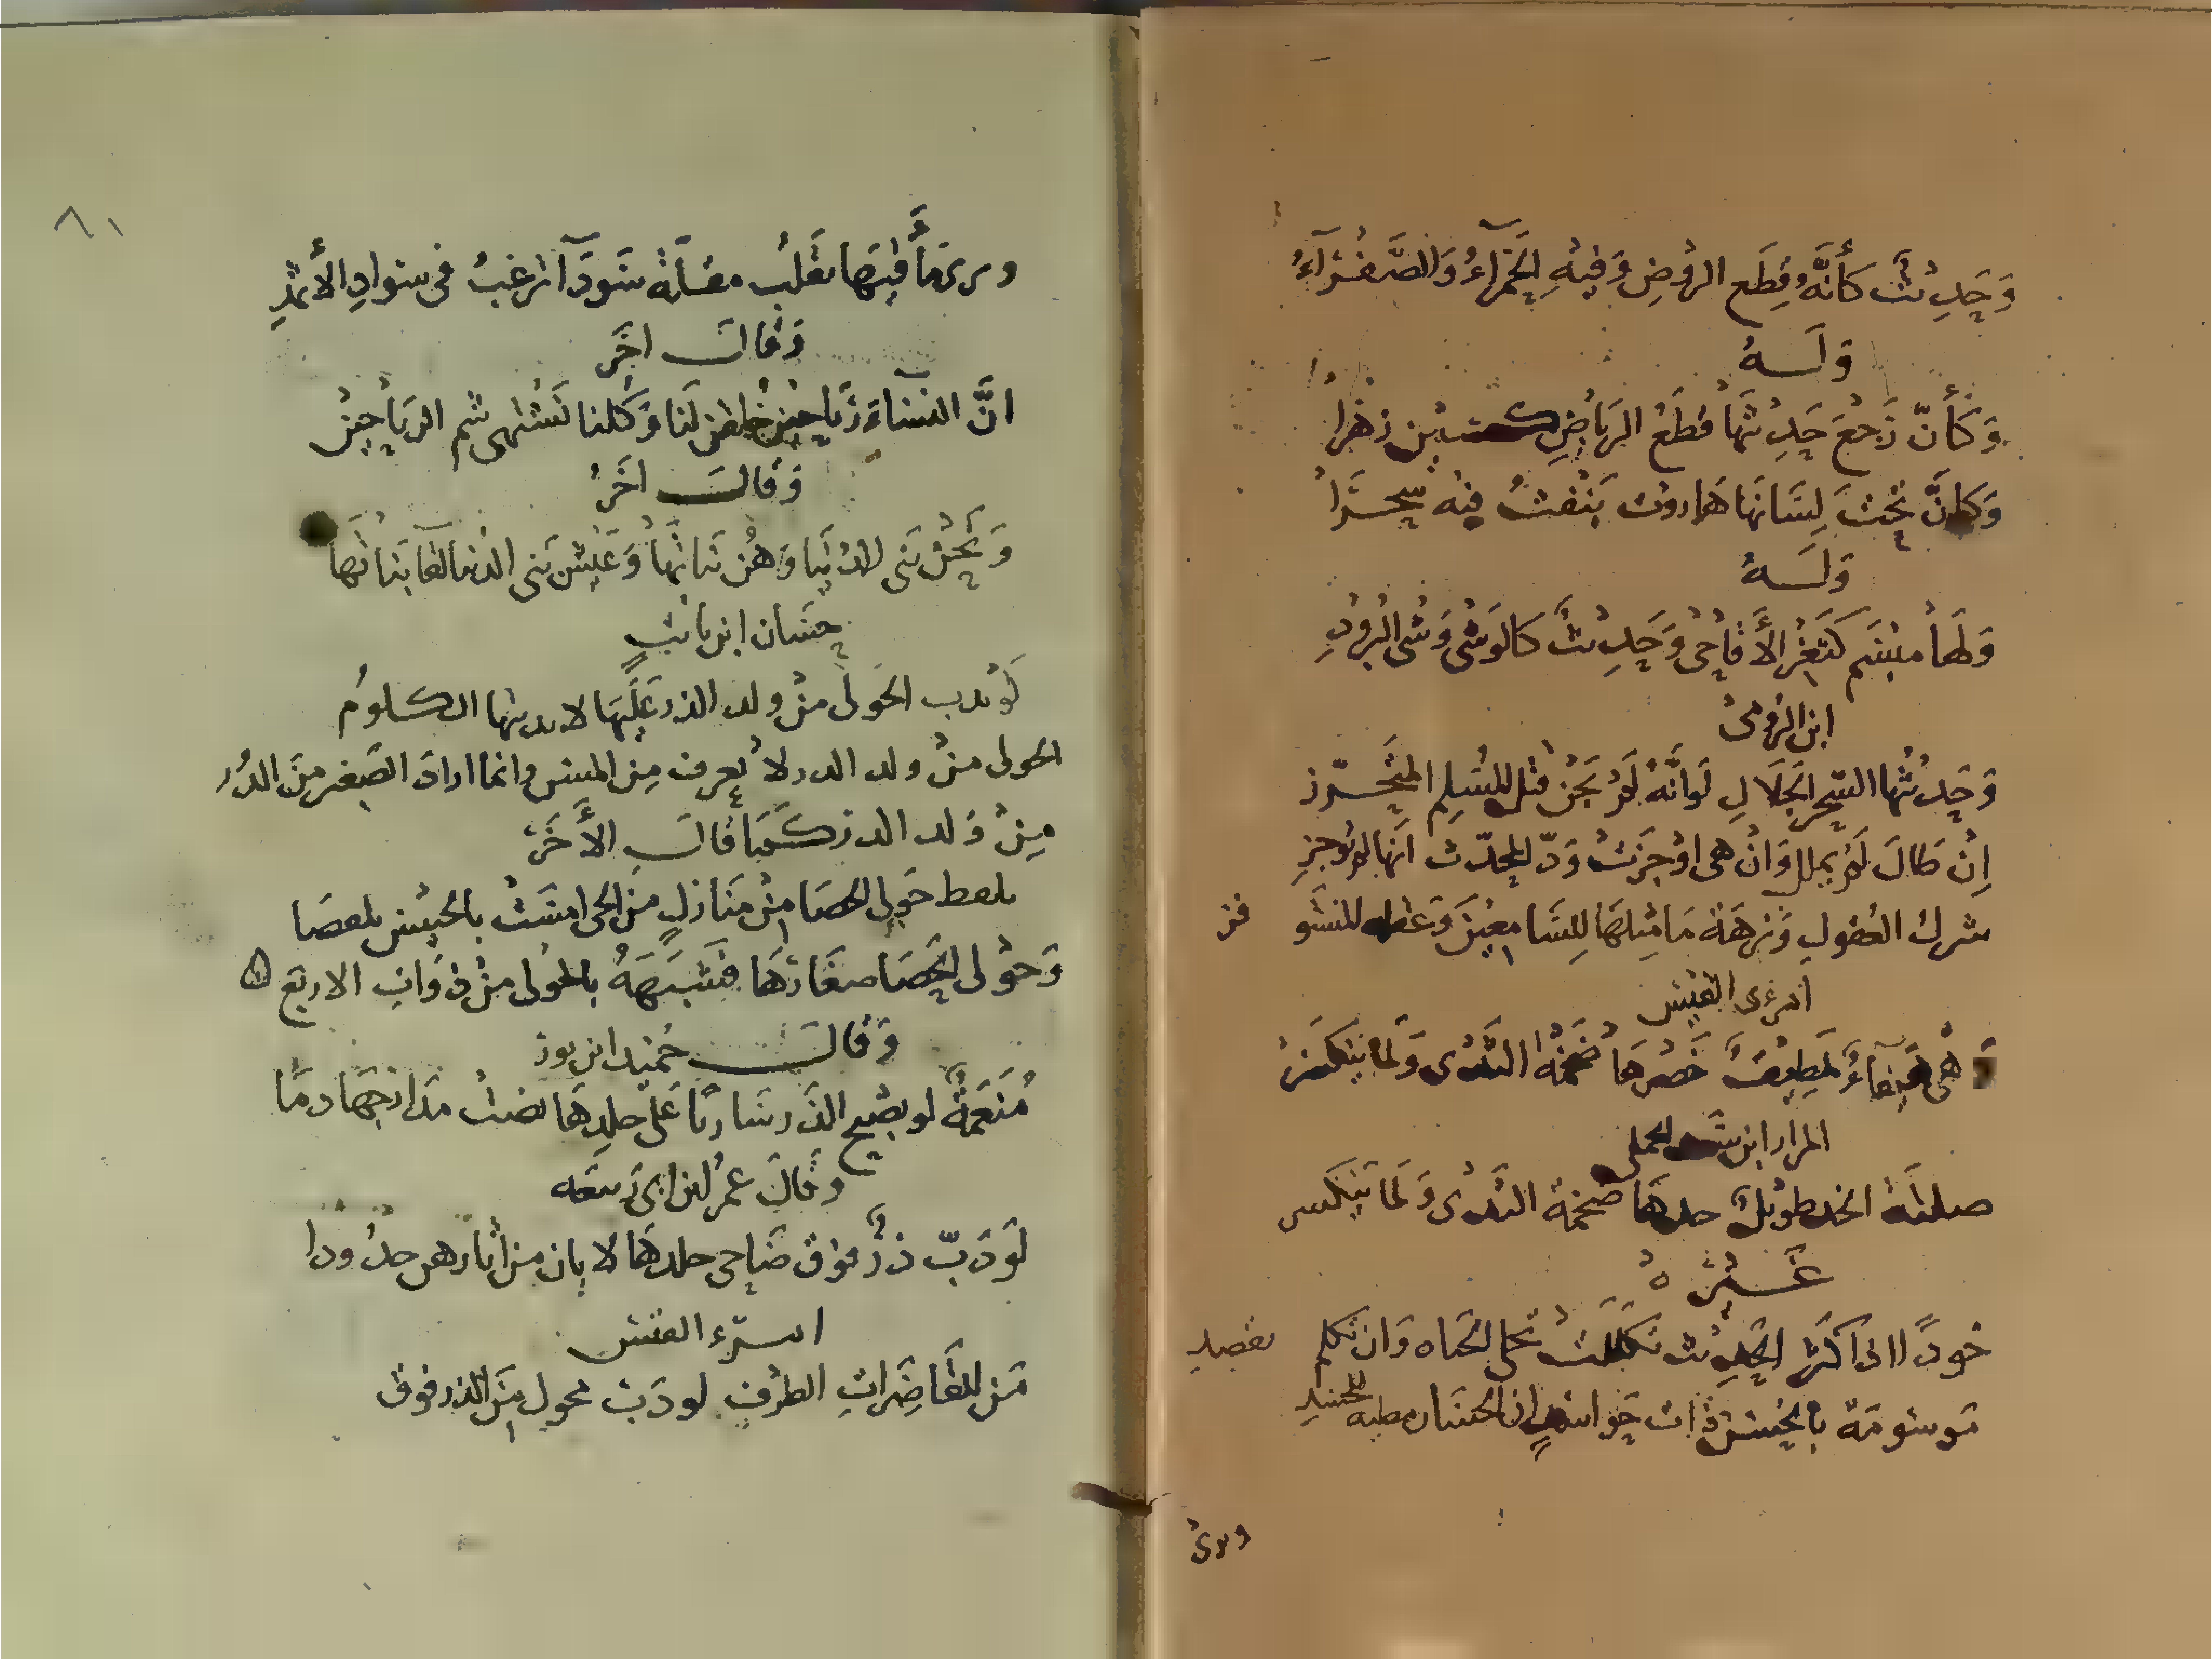 وَحَدِيثٌ كَأَنَّهُ قِطَع الروُضِ وَفِيهِ الحَمْرآءُ وَالصَّفْرَآءُ
وَلَـــهُ
وَكَأَنّ رَجْعَ حَدِيثهَا قطَعُ الرِيَاضِ كسـين زهْرا
وَكَانَّ تَحْتَ لِسَانهَا هَاروت يَنْفثُ فيه سِحْــرَا
وَلَـــهُ
وَلهَا مبْسَم كثَغْر الأَقَاحِى وَحَدِيثٌ كَالوَشْى وَشْى البُرُودِ
ابن الرُومى
وَحَدِيثُها السّحر الحَلَالِ لَوانَّهُ لَمْ يَجْن قتل المُسْلِم المتَحَــرّز
اِنْ طَالَ لَمْ يملل وَانْ هى اوْجَزَتْ وَدّ المحدّث اَنها لم تُوجزِ
شرك العُقولِ وَنزهَة مَا مثلهَا لِلسَّامِعِينَ وَعقله المُسْتَو فز
امرءى القيس
هى هَيفَاءُ لَطِيفٌ خَصْرهَا ضَخْمَةُ الثَدْى وَلمَا يَنكسَرْ
المرار ابن
صلتَةُ الخد طويلٌ جيدهَا ضخمةُ الثَدْى وَلمَا يَنكسر
غَــيْرُهُ
خودٌ اذا كَثر الحَدِيث تكَلّلتْ بحلى الحَياه وَان تكلم تقصِدِ
موسُومَة بالحُسْن ذات حَواسدٍ ان الحسَان مطيه للحُسدِ
وترىْ
٨١
وترى مَأَقيهَا تقَلّب مقلةً سَودَآ ترغبُ فى سوادِ الأَثمدِ
وَقَالَ اخَر
انَّ النسَاءَ رَياحِين خُلِقن لَنا وَكُلنا نَشتهى شم الريَأحِين
وَقَالَ اخَرُ
وَنَحْن بَنى الدُنْيَا وَهُن بَنا تُهَا وَعَيْش بَنى الدنيا لقا بَنا تهَا
حسَان ابن ثابتٍ
لَوْ يدب الحَولى منْ ولد الذر عَلَيهَا لاندبتها الكلومُ
الحولى منْ ولد الذر لا يُعرف مِن المسِن وانما ارادَ الصّغير مِنَ الذُر
مِنْ وَلد الذر كــمَا قَالَ الأَخَرَ
يلقط حَولِى الحصَا مِنْ مَنَازلٍ من الحى امسَتْ بالحبيبين بلقعَا
وَحوْلى الحَصَا صغَارَهَا فشبَهَهُ بالحُولى منْ ذوَاتِ الاربَع
وَقَالَ حُميد ابن ثور
مُنَعّمَةٌ لو يصْبح الذَر سَاريًا عَلى جلدِهَا نضتْ مدَارجهَا دمَا
وَقَالَ عمرُ ابن ابى رَبيعَه
لَوْ دَبّ ذرٌ فوْق ضَاحِى جلدهَا لا بان من اثارهن حدُودا
امــرُء القيس
مَن القَاصِرَاتِ الطرْفِ لو دَبَّ محول مِنَ الذر فوق